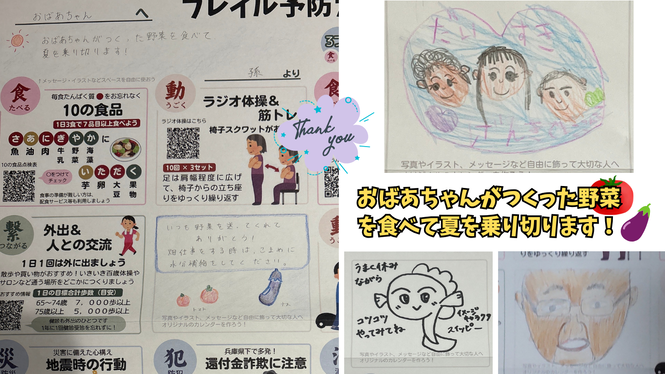 おばあちゃん へ
フレイル予防
おばあちゃんがつくった野菜を食べて
夏を乗り切ります!
孫 より
食
たべる
毎食たんぱく質をお忘れなく
10の食品
1日3食で7品目以上食べよう
さあにぎやかに
魚油肉牛野海
乳菜藻
10の食品点検表
○をつけて
チェック
いただく
芋卵大果
豆物
食事の準備が難しい方は、
配食サービス等も利用しましょう
動
うごく
ラジオ体操&
筋トレ
ラジオ体操はこちら
椅子スクワットが
10回×3セット
足は肩幅程度に広げ
て、椅子からの立ち座
りをゆっくり繰り返す
繋
つながる
外出&
人との交流
1日1回は外に出ましょう
散歩や買い物がおすすめ!いきいき百歳体操や
サロンなど通う場所をどこかにつくりましょう
おすすめ情報
1日の目標合計歩数(目安)
65~74歳 7,000歩以上
75歳以上 5,000歩以上
いつも野菜を送ってくれて
ありがとう!
畑仕事をする時は、こまめに
水分補給をしてください。
写真やイラスト、メッセージなど自由に飾って大切な人へ
オリジナルのカレンダーを作ろう!
災
防災
災害に備えた心構え
地震時の行動
犯
防犯
兵庫県下で多発!
還付金詐欺に注意
Thank
you
だいすき
写真やイラスト、メッセージなど自由に飾って大切な人へ
おばあちゃんがつくった野菜
を食べて夏を乗り切ります!
うまく休み
ながら
コツコツ
やってみてね
イメージ
キャラクタ
スイッピー
写真やイラスト、メッセージなど自由に飾って大切な人へ
りをゆっくり繰り返す